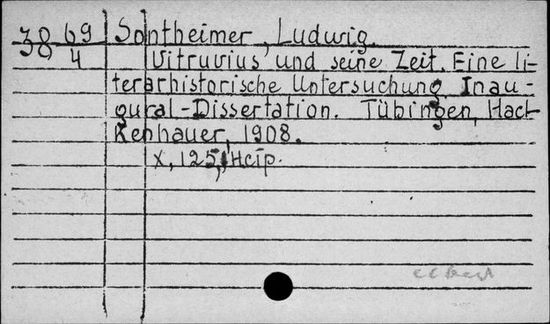 38 69 Sontheimer, Ludwig.
4 Vitruvius und seine Zeit. Eine li-
terarhistorische Untersuchung Inau-
gural-Dissertation. Tübingen, Hack-
kenhauer, 1908.
X, 125,